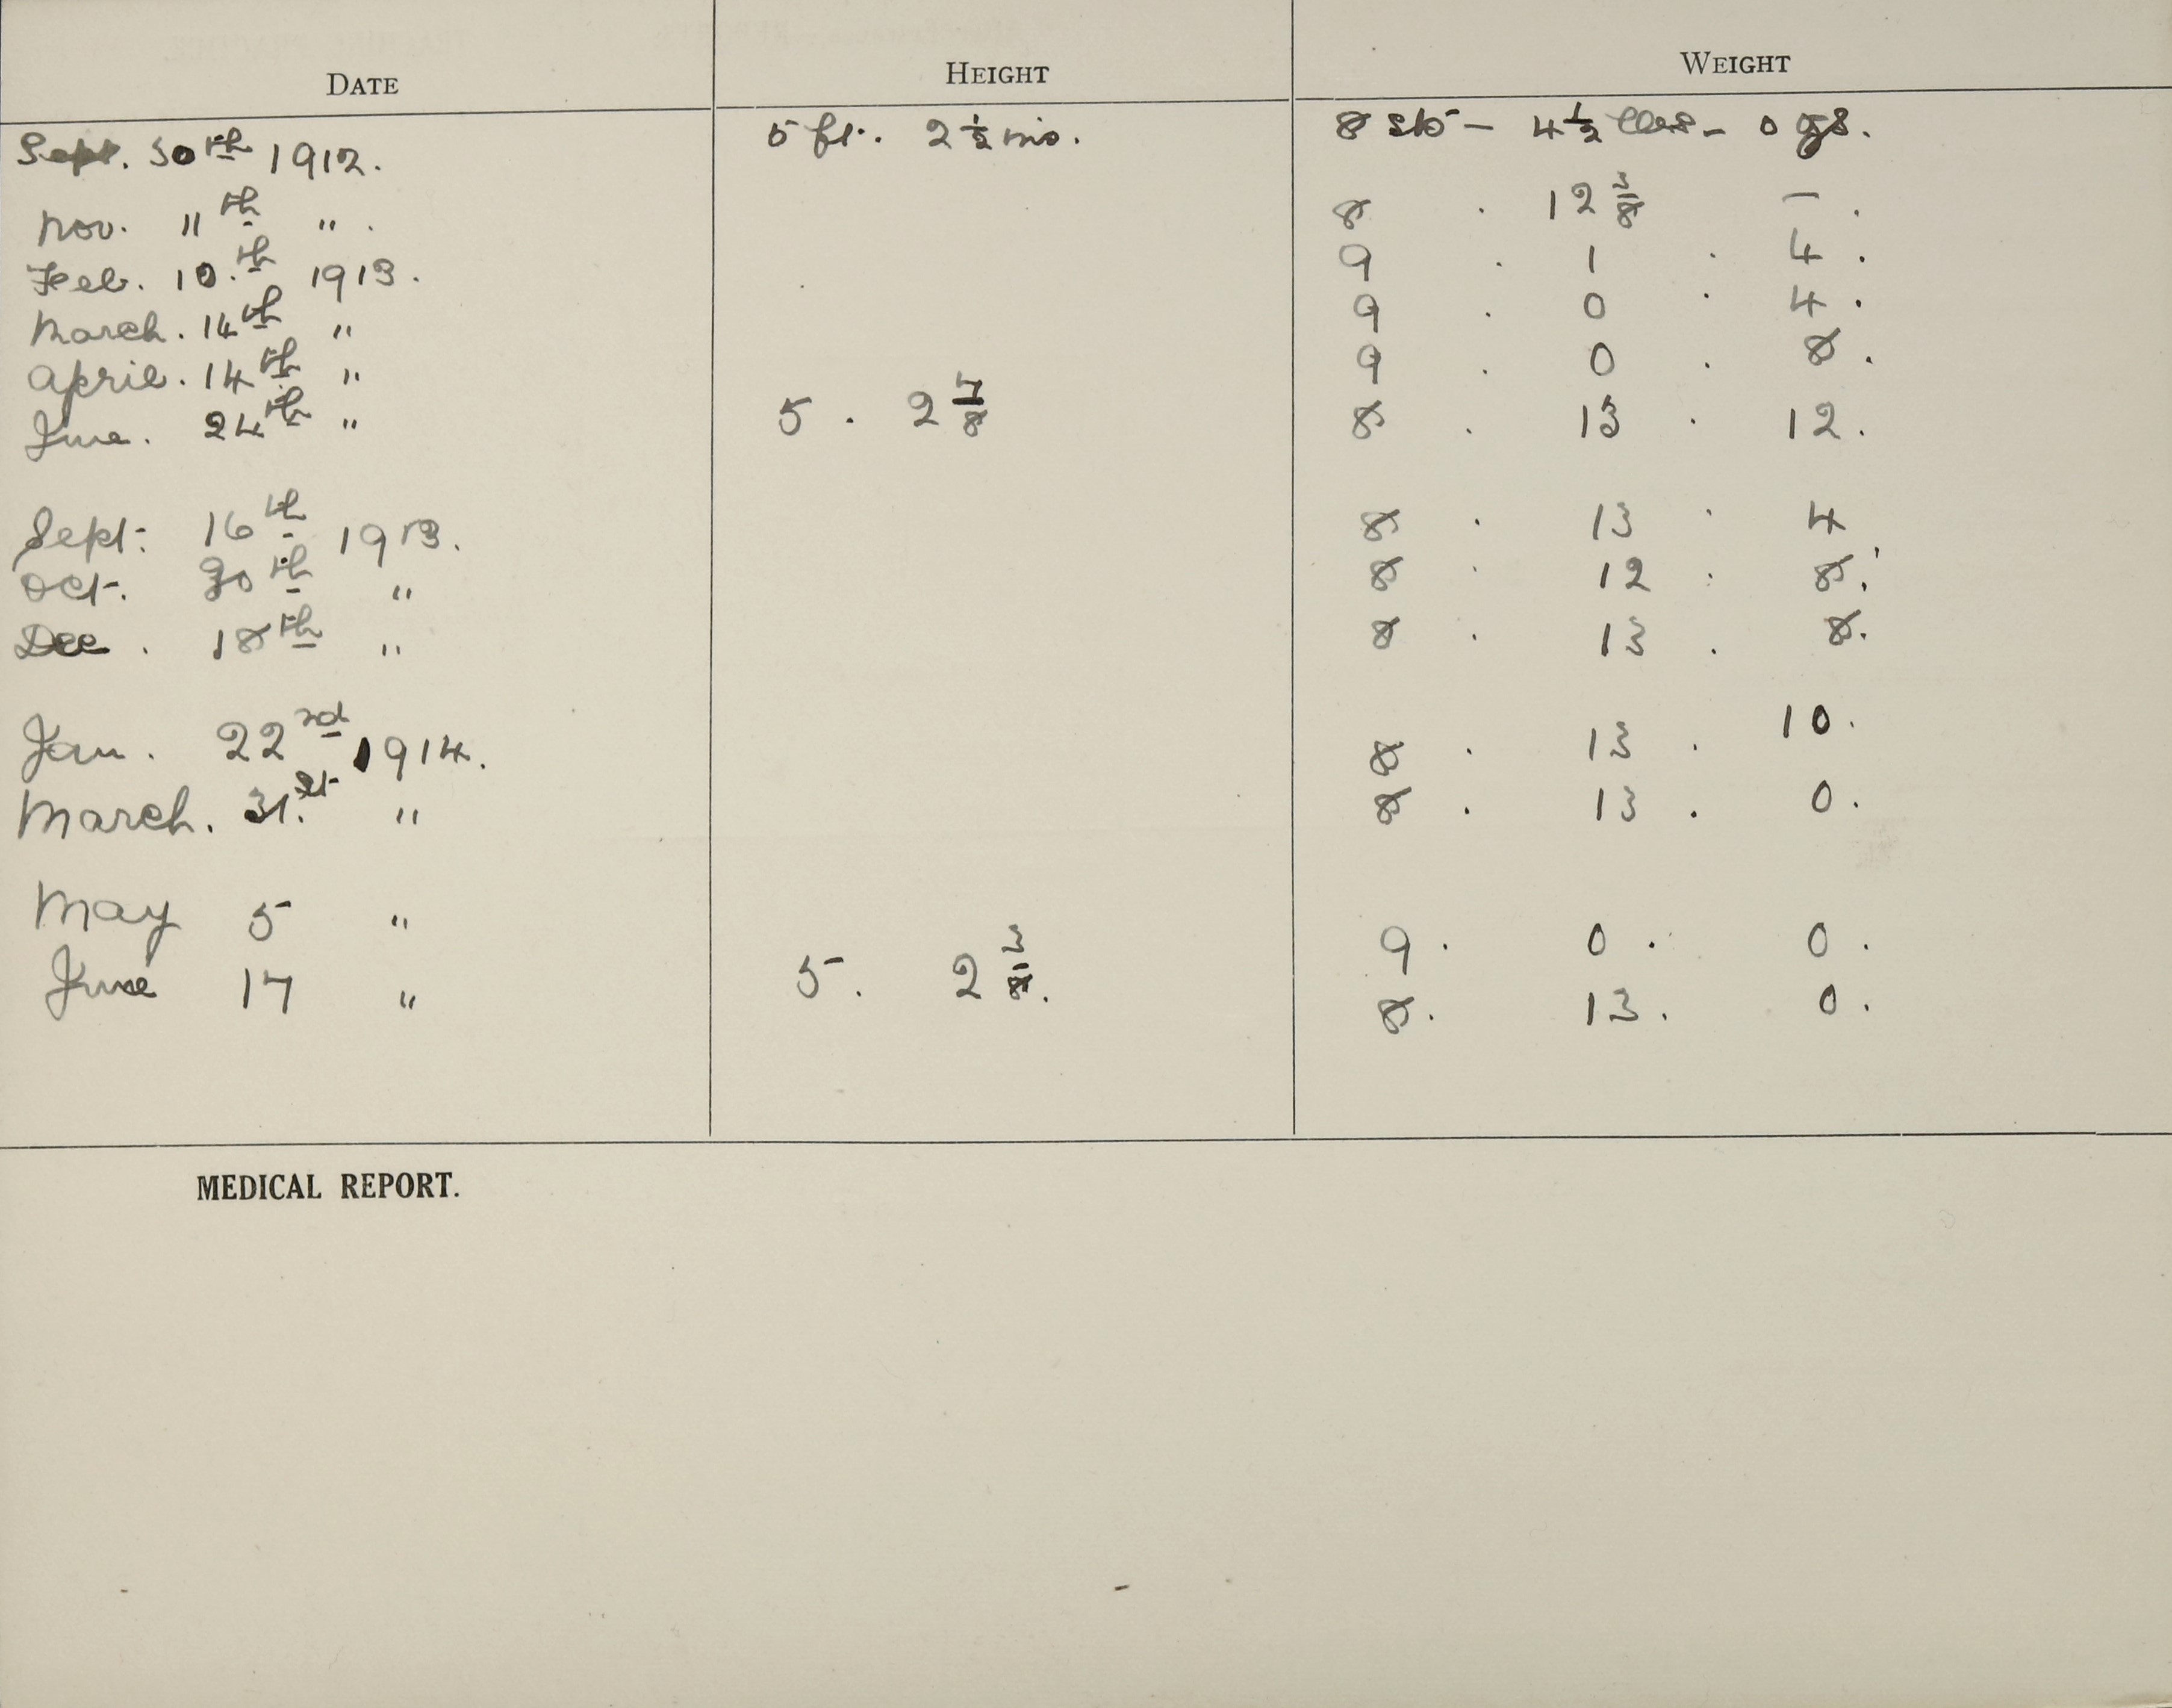 DATE HEIGHT WEIGHT
Sept. 30th 1912. 5 ft. 2 1/2 ins. 8 sts - 4 1/2 lbs - 0 ozs.
Nov. 11th " . 8 . 12 3/8 — .
Feb. 10.th 1913. 9 . 1 . 4 .
March. 14th " 9 . 0 . 4 .
April. 14th " 9 . 0 . 8 .
June. 24th " 5 . 2 7/8 8 . 13 . 12 .
Sept. 16th 1913. 8 . 13 . 4
Oct. 30th " 8 . 12 . 8 .
Dec . 18th " 8 . 13 . 8 .
Jan. 22nd 1914. 8 . 13 . 10 .
March. 31.st " 8 . 13 . 0 .
May 5 " 9 . 0 . 0 .
June 17 " 5 . 2 3/8 . 8 . 13 . 0 .
MEDICAL REPORT.